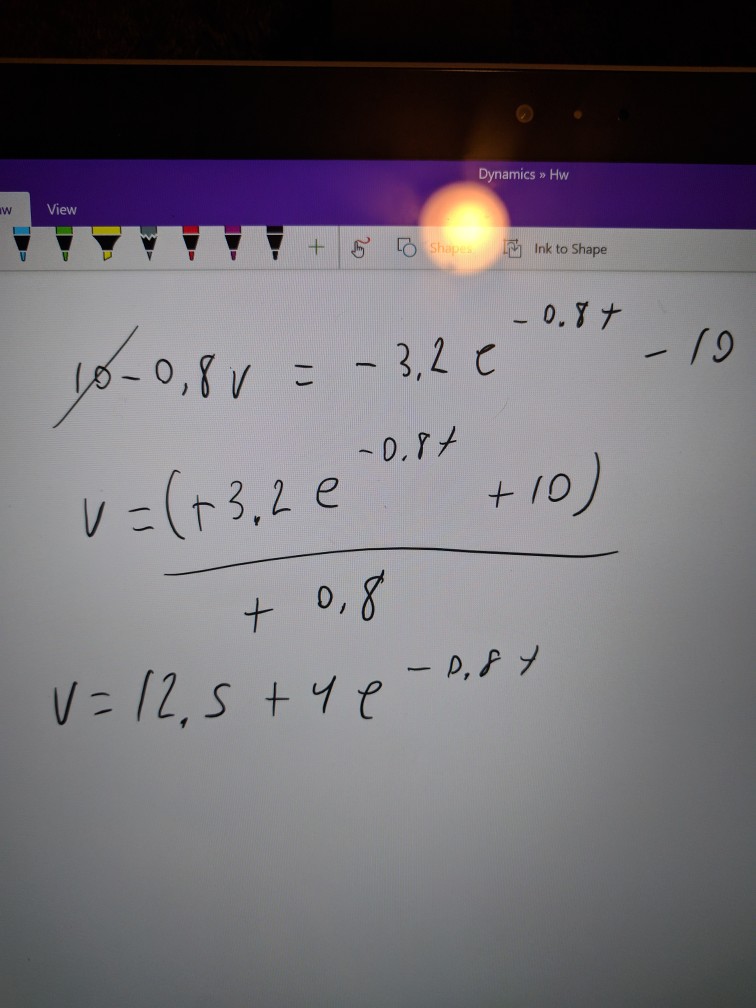 Dynamics » Hw
aw View
Shapes Ink to Shape
10 - 0,8 v = - 3,2 e^{-0.8t} - 10
v = (+3.2 e^{-0.8t} + 10)
+ 0,8
v = 12.5 + 4 e^{-0.8t}